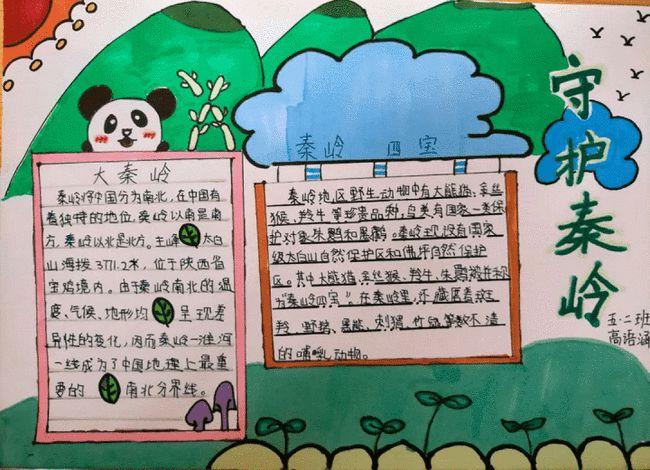 守护秦岭
五·二班
高语涵
大秦岭
秦岭将中国分为南北，在中国有
着独特的地位。秦岭以南是南
方，秦岭以北是北方。主峰太白
山海拨3771.2米，位于陕西省
宝鸡境内。由于秦岭南北的温
度、气候、地形均呈现差
异性的变化，因而秦岭一淮河
一线成为了中国地理上最重
要的南北分界线。
秦岭 四宝
秦岭地区野生动物中有大熊猫、金丝
猴、羚牛等珍贵品种，鸟类有国家一类保
护对象朱鹮和黑鹳。秦岭现设有国家
级太白山自然保护区和佛坪自然保护
区。其中大熊猫、金丝猴、羚牛、朱鹮被并称
为“秦岭四宝”。在秦岭里，还藏匿着斑
羚、野猪、黑熊、刺猬、竹鼠等数不清
的哺乳动物。